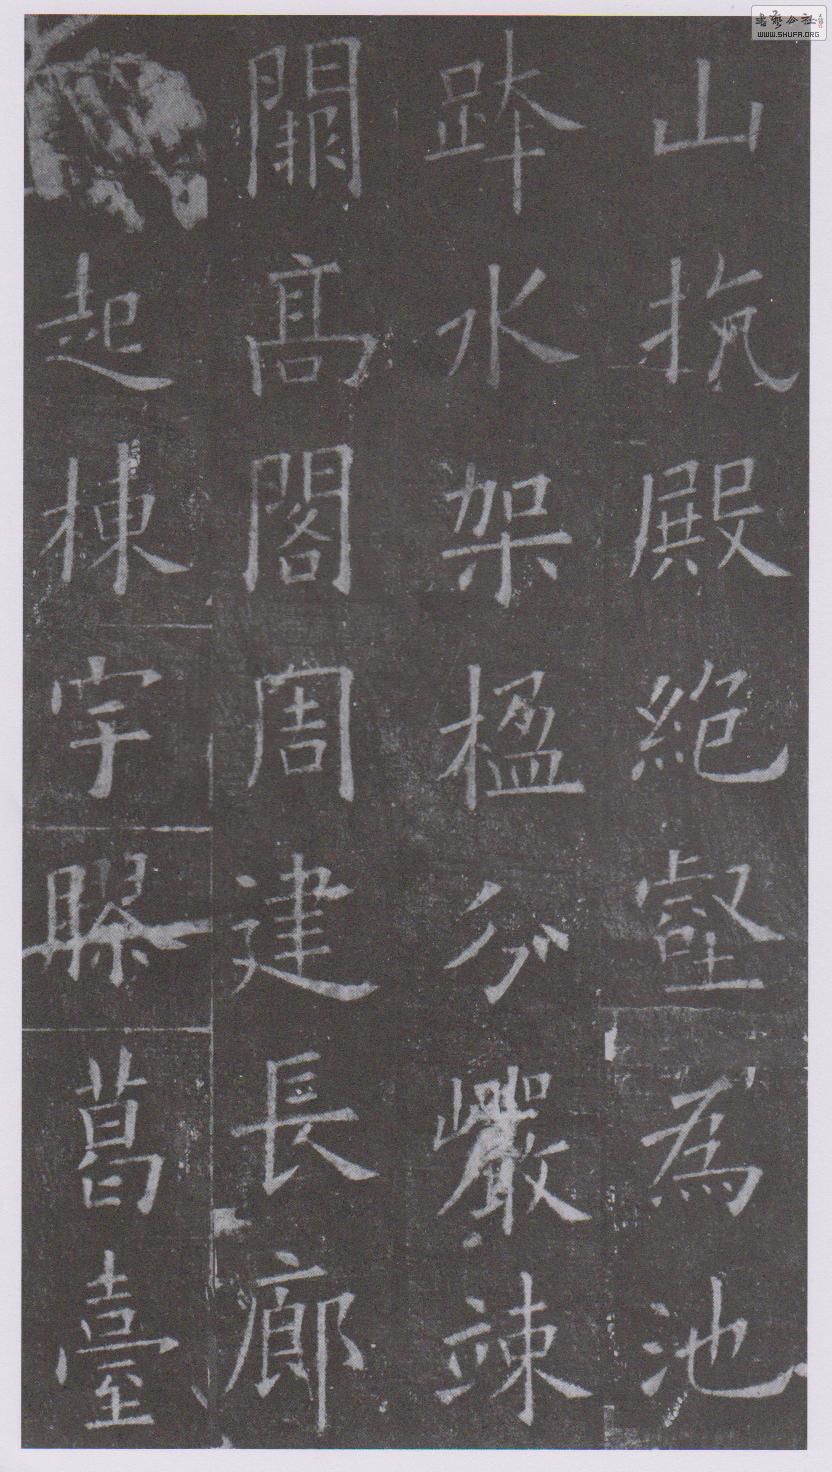 山抗殿絕壑為池
跨水架楹分巖竦
闕髙閣周建長廊
起棟宇膠葛臺
書藝公社
WWW.SHUFA.ORG